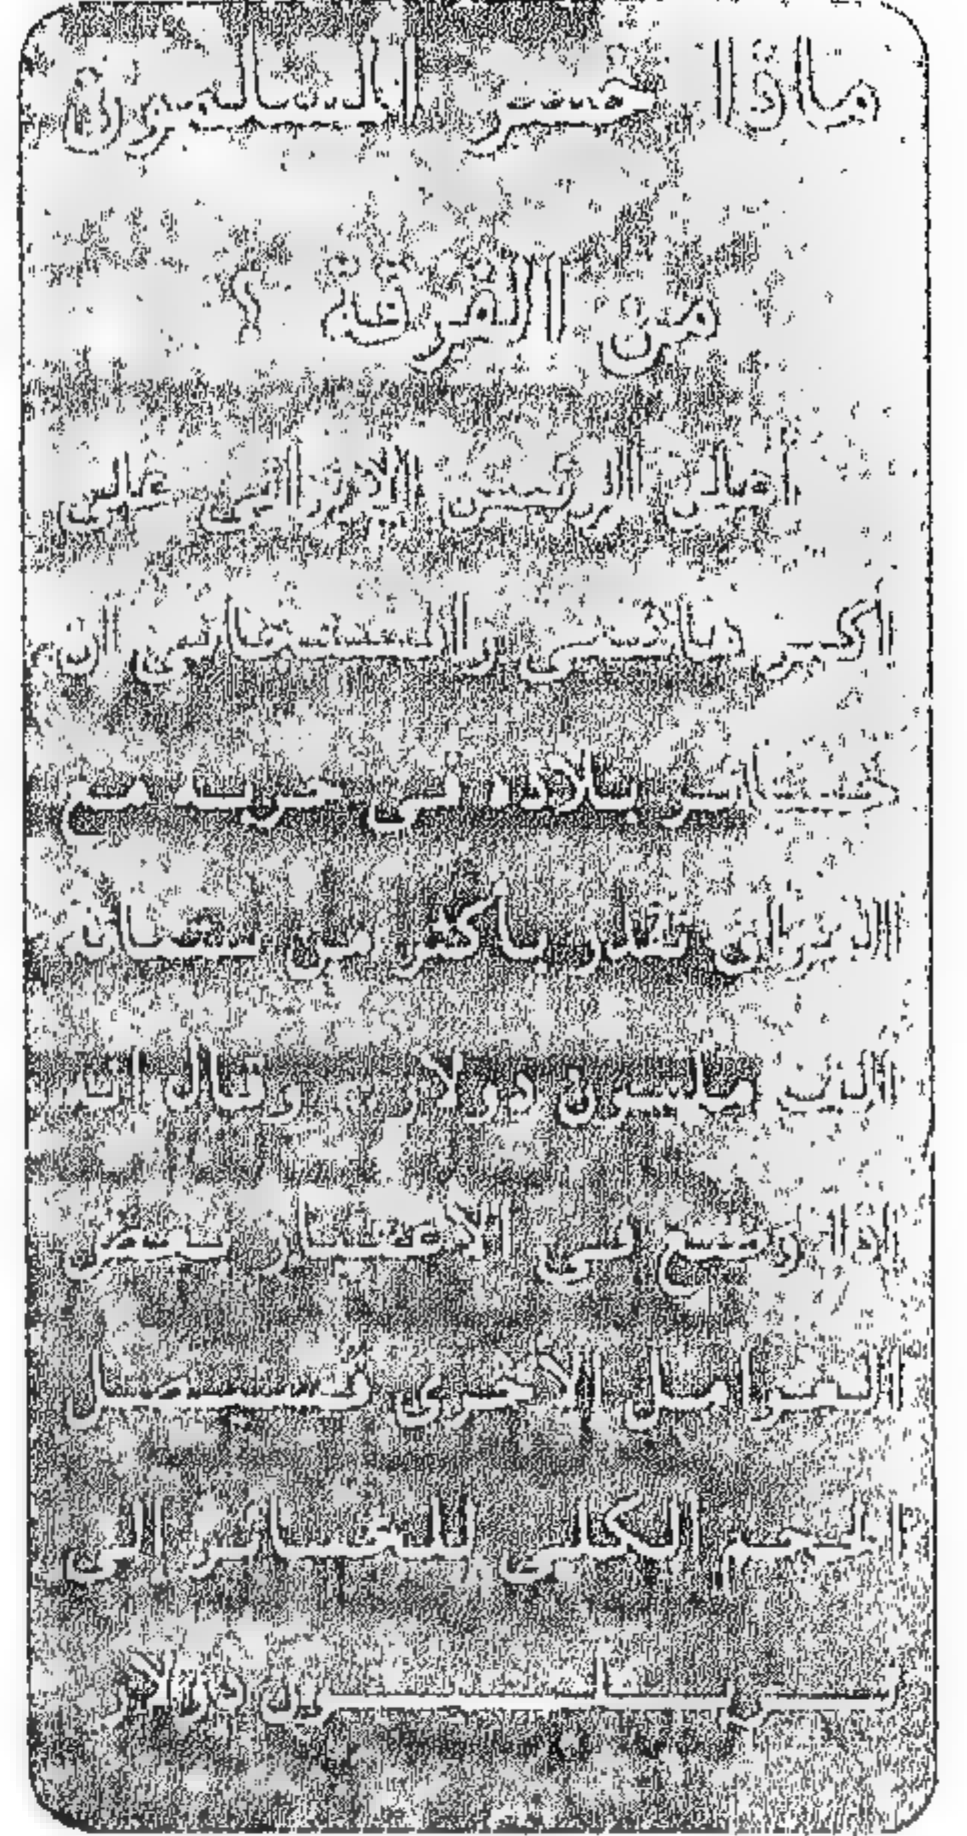 ماذا خسر المسلمون
من الفرقة ؟
أعلن الرئيس الإيرانى على
أكبر هاشمى رافسنجانى ان
خسائر بلاده فى حربه مع
العراق تقدر بأكثر من ستمائة
الف مليون دولار . وقال انه
اذا وضع فى الاعتبار بعض
العوامل الأخرى فسيصل
الحجم الكلى للخسائر الى
تريليون دولار